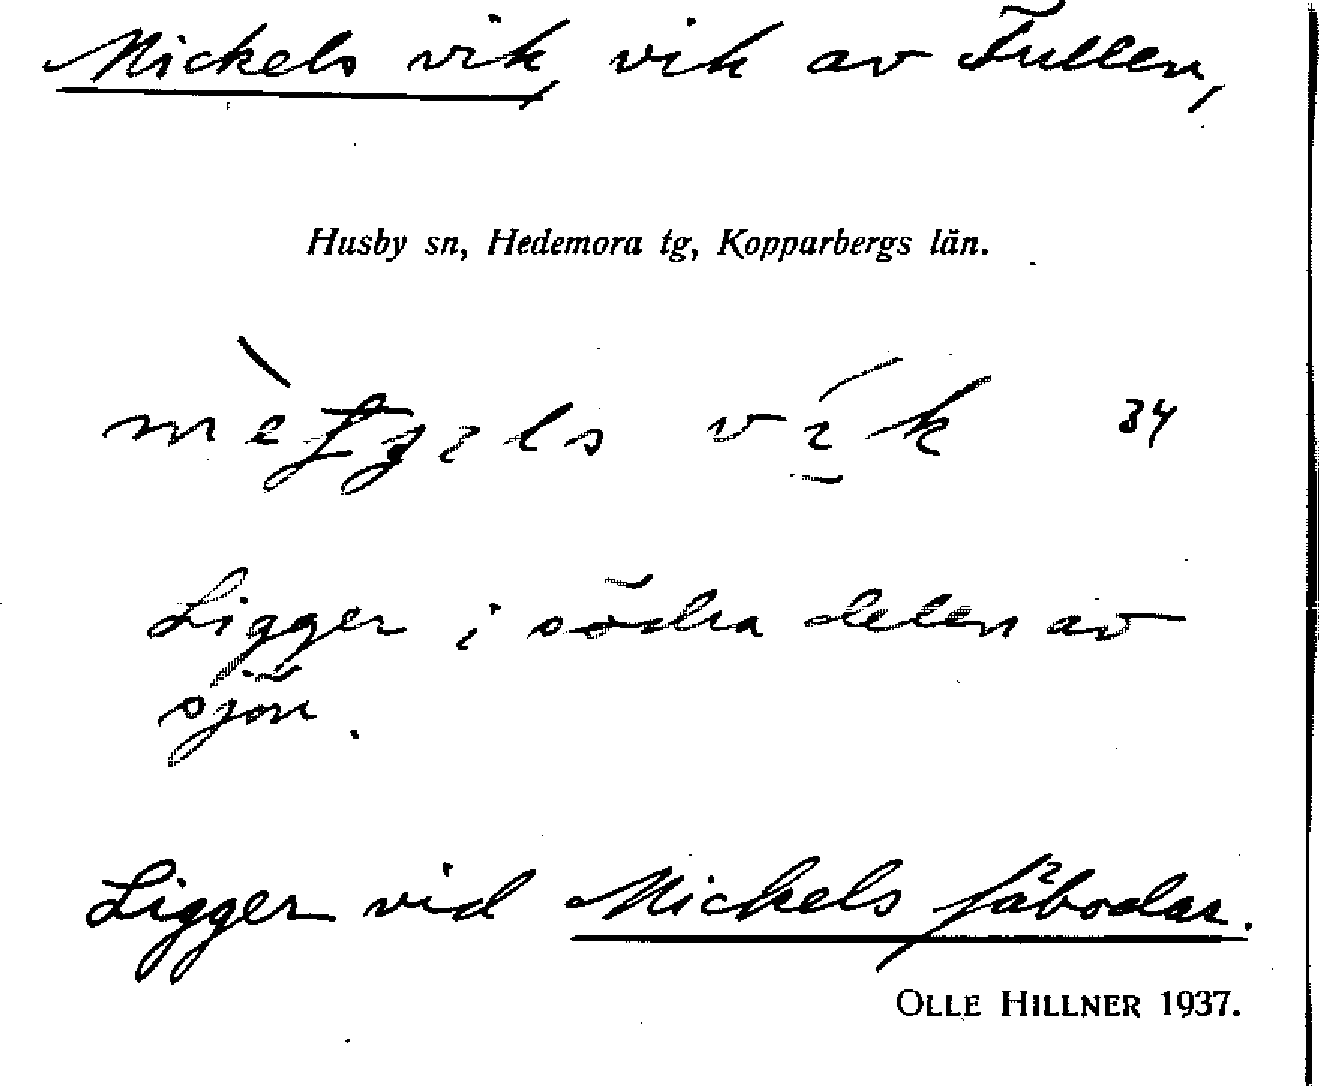 Nickels vik, vik av Fullen,
Husby sn, Hedemora tg, Kopparbergs län.
vik 34
Ligger i södra delen av
sjön.
Ligger vid Nickels fäbodar.
OLLE HILLNER 1937.